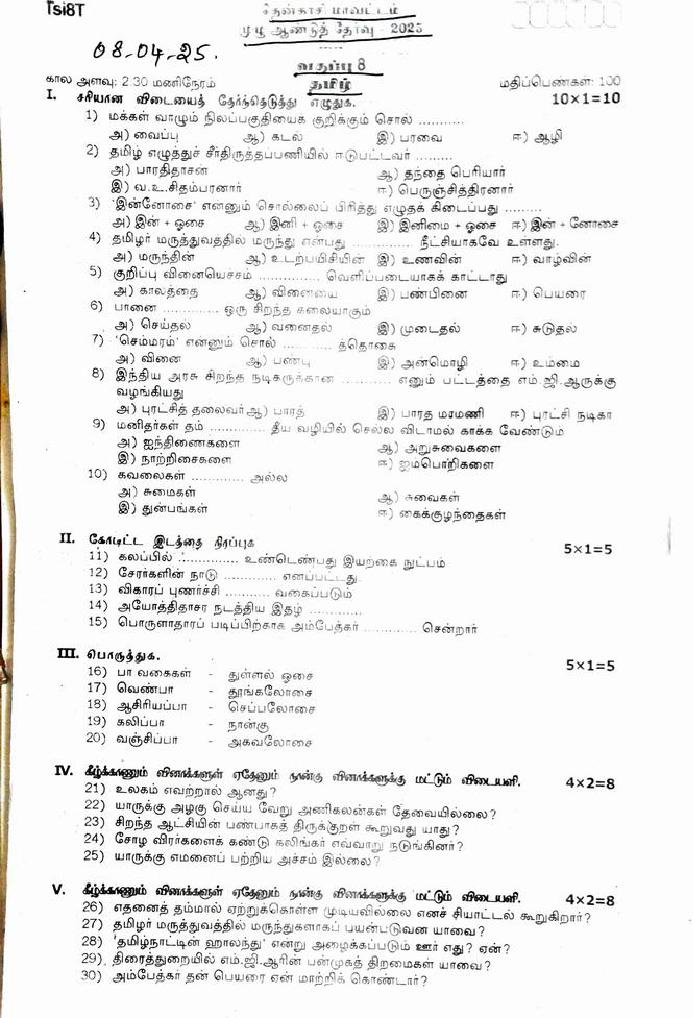 Tsi8T
தென்காசி மாவட்டம்
முழு ஆண்டுத் தேர்வு - 2025
08-04-25.
வகுப்பு 8
தமிழ்
கால அளவு: 2.30 மணிநேரம் மதிப்பெண்கள்: 100
I. சரியான விடையைத் தேர்ந்தெடுத்து எழுதுக. 10×1=10
1) மக்கள் வாழும் நிலப்பகுதியைக் குறிக்கும் சொல் ............
அ) வைப்பு ஆ) கடல் இ) பரவை ஈ) ஆழி
2) தமிழ் எழுத்துச் சீர்திருத்தப்பணியில் ஈடுபட்டவர் .........
அ) பாரதிதாசன் ஆ) தந்தை பெரியார்
இ) வ.உ.சிதம்பரனார் ஈ) பெருஞ்சித்திரனார்
3) 'இன்னோசை' என்னும் சொல்லைப் பிரித்து எழுதக் கிடைப்பது .........
அ) இன் + ஓசை ஆ) இனி + ஓசை இ) இனிமை + ஓசை ஈ) இன் + னோசை
4) தமிழர் மருத்துவத்தில் மருந்து என்பது .............. நீட்சியாகவே உள்ளது.
அ) மருந்தின் ஆ) உடற்பயிசியின் இ) உணவின் ஈ) வாழ்வின்
5) குறிப்பு வினையெச்சம் .............. வெளிப்படையாகக் காட்டாது
அ) காலத்தை ஆ) வினையை இ) பண்பினை ஈ) பெயரை
6) பானை .............. ஒரு சிறந்த கலையாகும்
அ) செய்தல் ஆ) வனைதல் இ) முடைதல் ஈ) சுடுதல்
7) 'செம்மரம்' என்னும் சொல் .......... த்தொகை
அ) வினை ஆ) பண்பு இ) அன்மொழி ஈ) உம்மை
8) இந்திய அரசு சிறந்த நடிகருக்கான ............ எனும் பட்டத்தை எம்.ஜி.ஆருக்கு
வழங்கியது
அ) புரட்சித் தலைவர் ஆ) பாரத் இ) பாரத மாமணி ஈ) புரட்சி நடிகர்
9) மனிதர்கள் தம் .............. தீய வழியில் செல்ல விடாமல் காக்க வேண்டும்
அ) ஐந்திணைகளை ஆ) அறுசுவைகளை
இ) நாற்றிசைகளை ஈ) ஐம்பொறிகளை
10) கவலைகள் ............ அல்ல
அ) சுமைகள் ஆ) சுவைகள்
இ) துன்பங்கள் ஈ) கைக்குழந்தைகள்
II. கோடிட்ட இடத்தை நிரப்புக 5×1=5
11) கலப்பில் .............. உண்டென்பது இயற்கை நுட்பம்
12) சேரர்களின் நாடு ............. எனப்பட்டது.
13) விகாரப் புணர்ச்சி .......... வகைப்படும்
14) அயோத்திதாசர் நடத்திய இதழ் ............
15) பொருளாதாரப் படிப்பிற்காக அம்பேத்கர் ............ சென்றார்
III. பொருத்துக. 5×1=5
16) பா வகைகள் - துள்ளல் ஓசை
17) வெண்பா - தூங்கலோசை
18) ஆசிரியப்பா - செப்பலோசை
19) கலிப்பா - நான்கு
20) வஞ்சிப்பா - அகவலோசை
IV. கீழ்க்காணும் வினாக்களுள் ஏதேனும் நான்கு வினாக்களுக்கு மட்டும் விடையளி. 4×2=8
21) உலகம் எவற்றால் ஆனது?
22) யாருக்கு அழகு செய்ய வேறு அணிகலன்கள் தேவையில்லை?
23) சிறந்த ஆட்சியின் பண்பாகத் திருக்குறள் கூறுவது யாது?
24) சோழ வீரர்களைக் கண்டு கலிங்கர் எவ்வாறு நடுங்கினர்?
25) யாருக்கு எமனைப் பற்றிய அச்சம் இல்லை?
V. கீழ்க்காணும் வினாக்களுள் ஏதேனும் நான்கு வினாக்களுக்கு மட்டும் விடையளி. 4×2=8
26) எதனைத் தம்மால் ஏற்றுக்கொள்ள முடியவில்லை எனச் சியாட்டல் கூறுகிறார்?
27) தமிழர் மருத்துவத்தில் மருந்துகளாகப் பயன்படுவன யாவை?
28) 'தமிழ்நாட்டின் ஹாலந்து' என்று அழைக்கப்படும் ஊர் எது? ஏன்?
29) திரைத்துறையில் எம்.ஜி.ஆரின் பன்முகத் திறமைகள் யாவை?
30) அம்பேத்கர் தன் பெயரை ஏன் மாற்றிக் கொண்டார்?